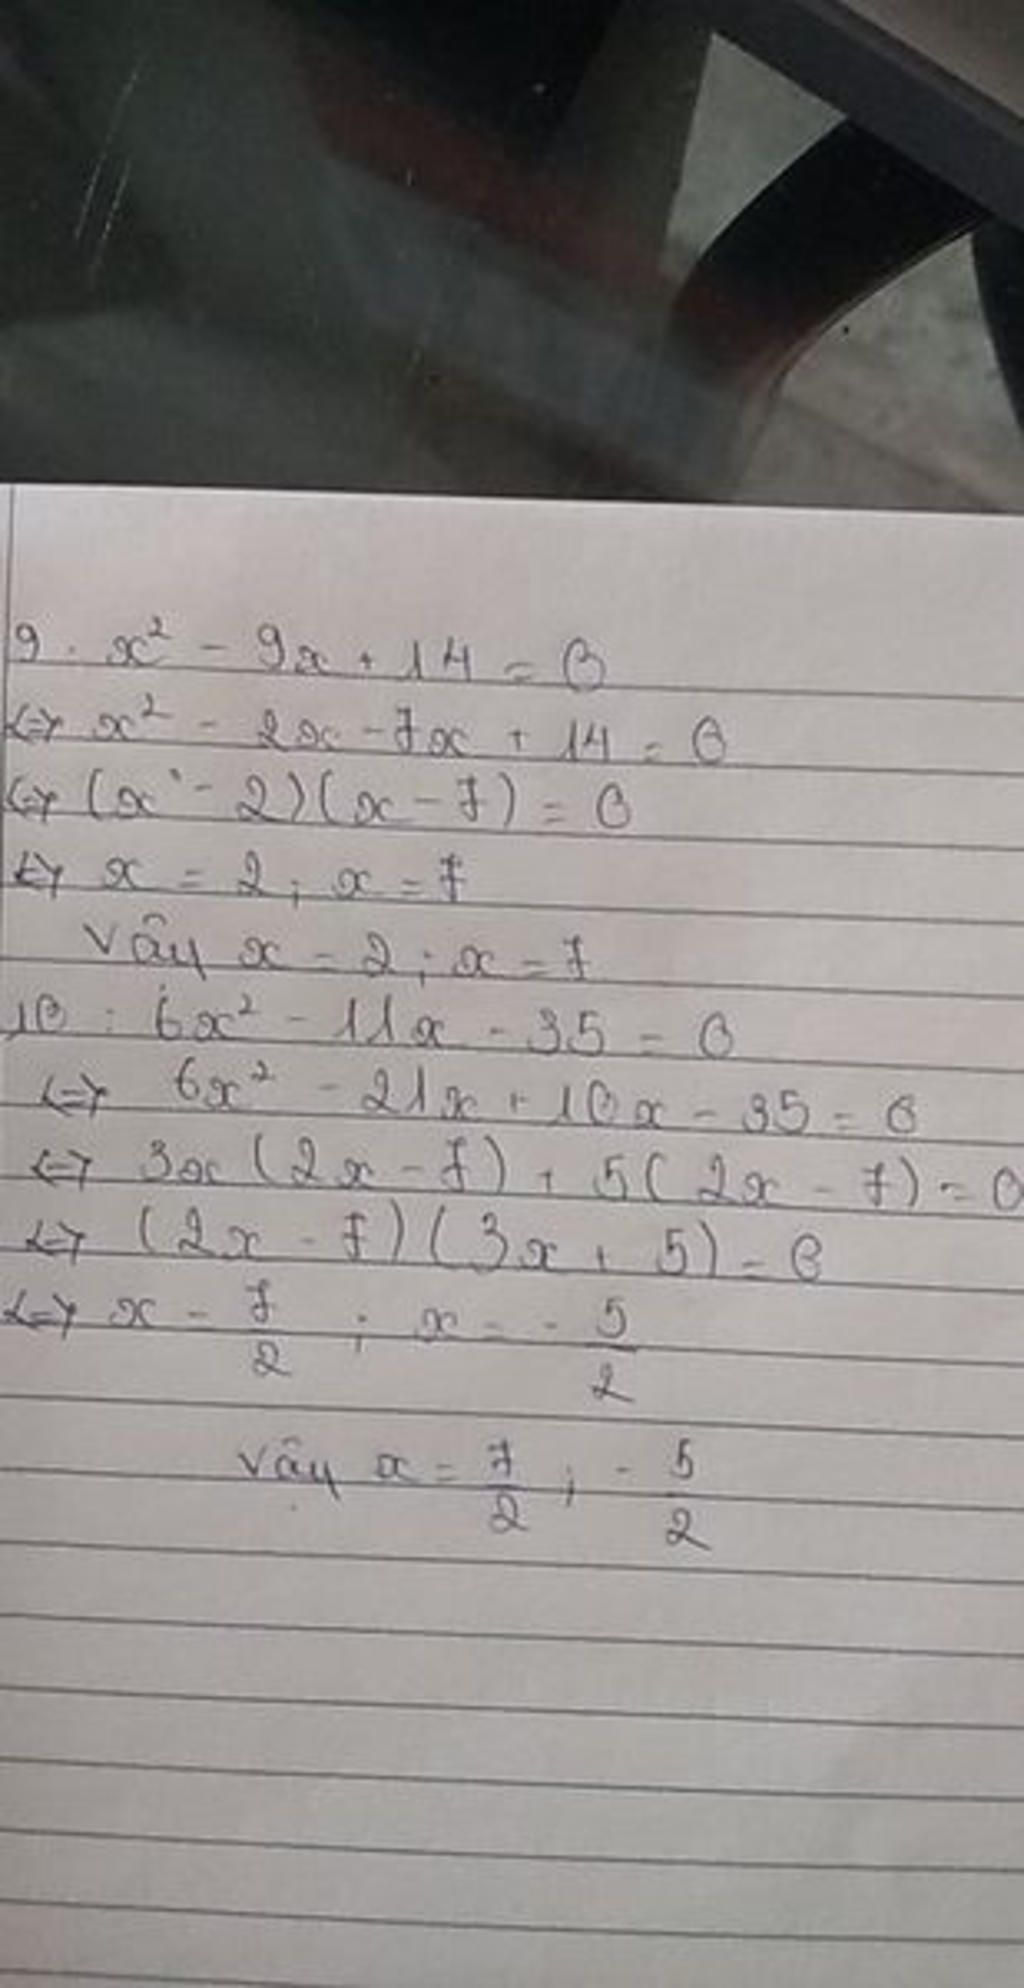 9. x² - 9x + 14 = 0
<=> x² - 2x - 7x + 14 = 0
<=> (x - 2)(x - 7) = 0
<=> x = 2 ; x = 7
Vậy x = 2 ; x = 7
10 : 6x² - 11x - 35 = 0
<=> 6x² - 21x + 10x - 35 = 0
<=> 3x (2x - 7) + 5( 2x - 7) = 0
<=> (2x - 7) (3x + 5) = 0
<=> x = 7/2 ; x = - 5/2
Vậy x = 7/2 ; - 5/2